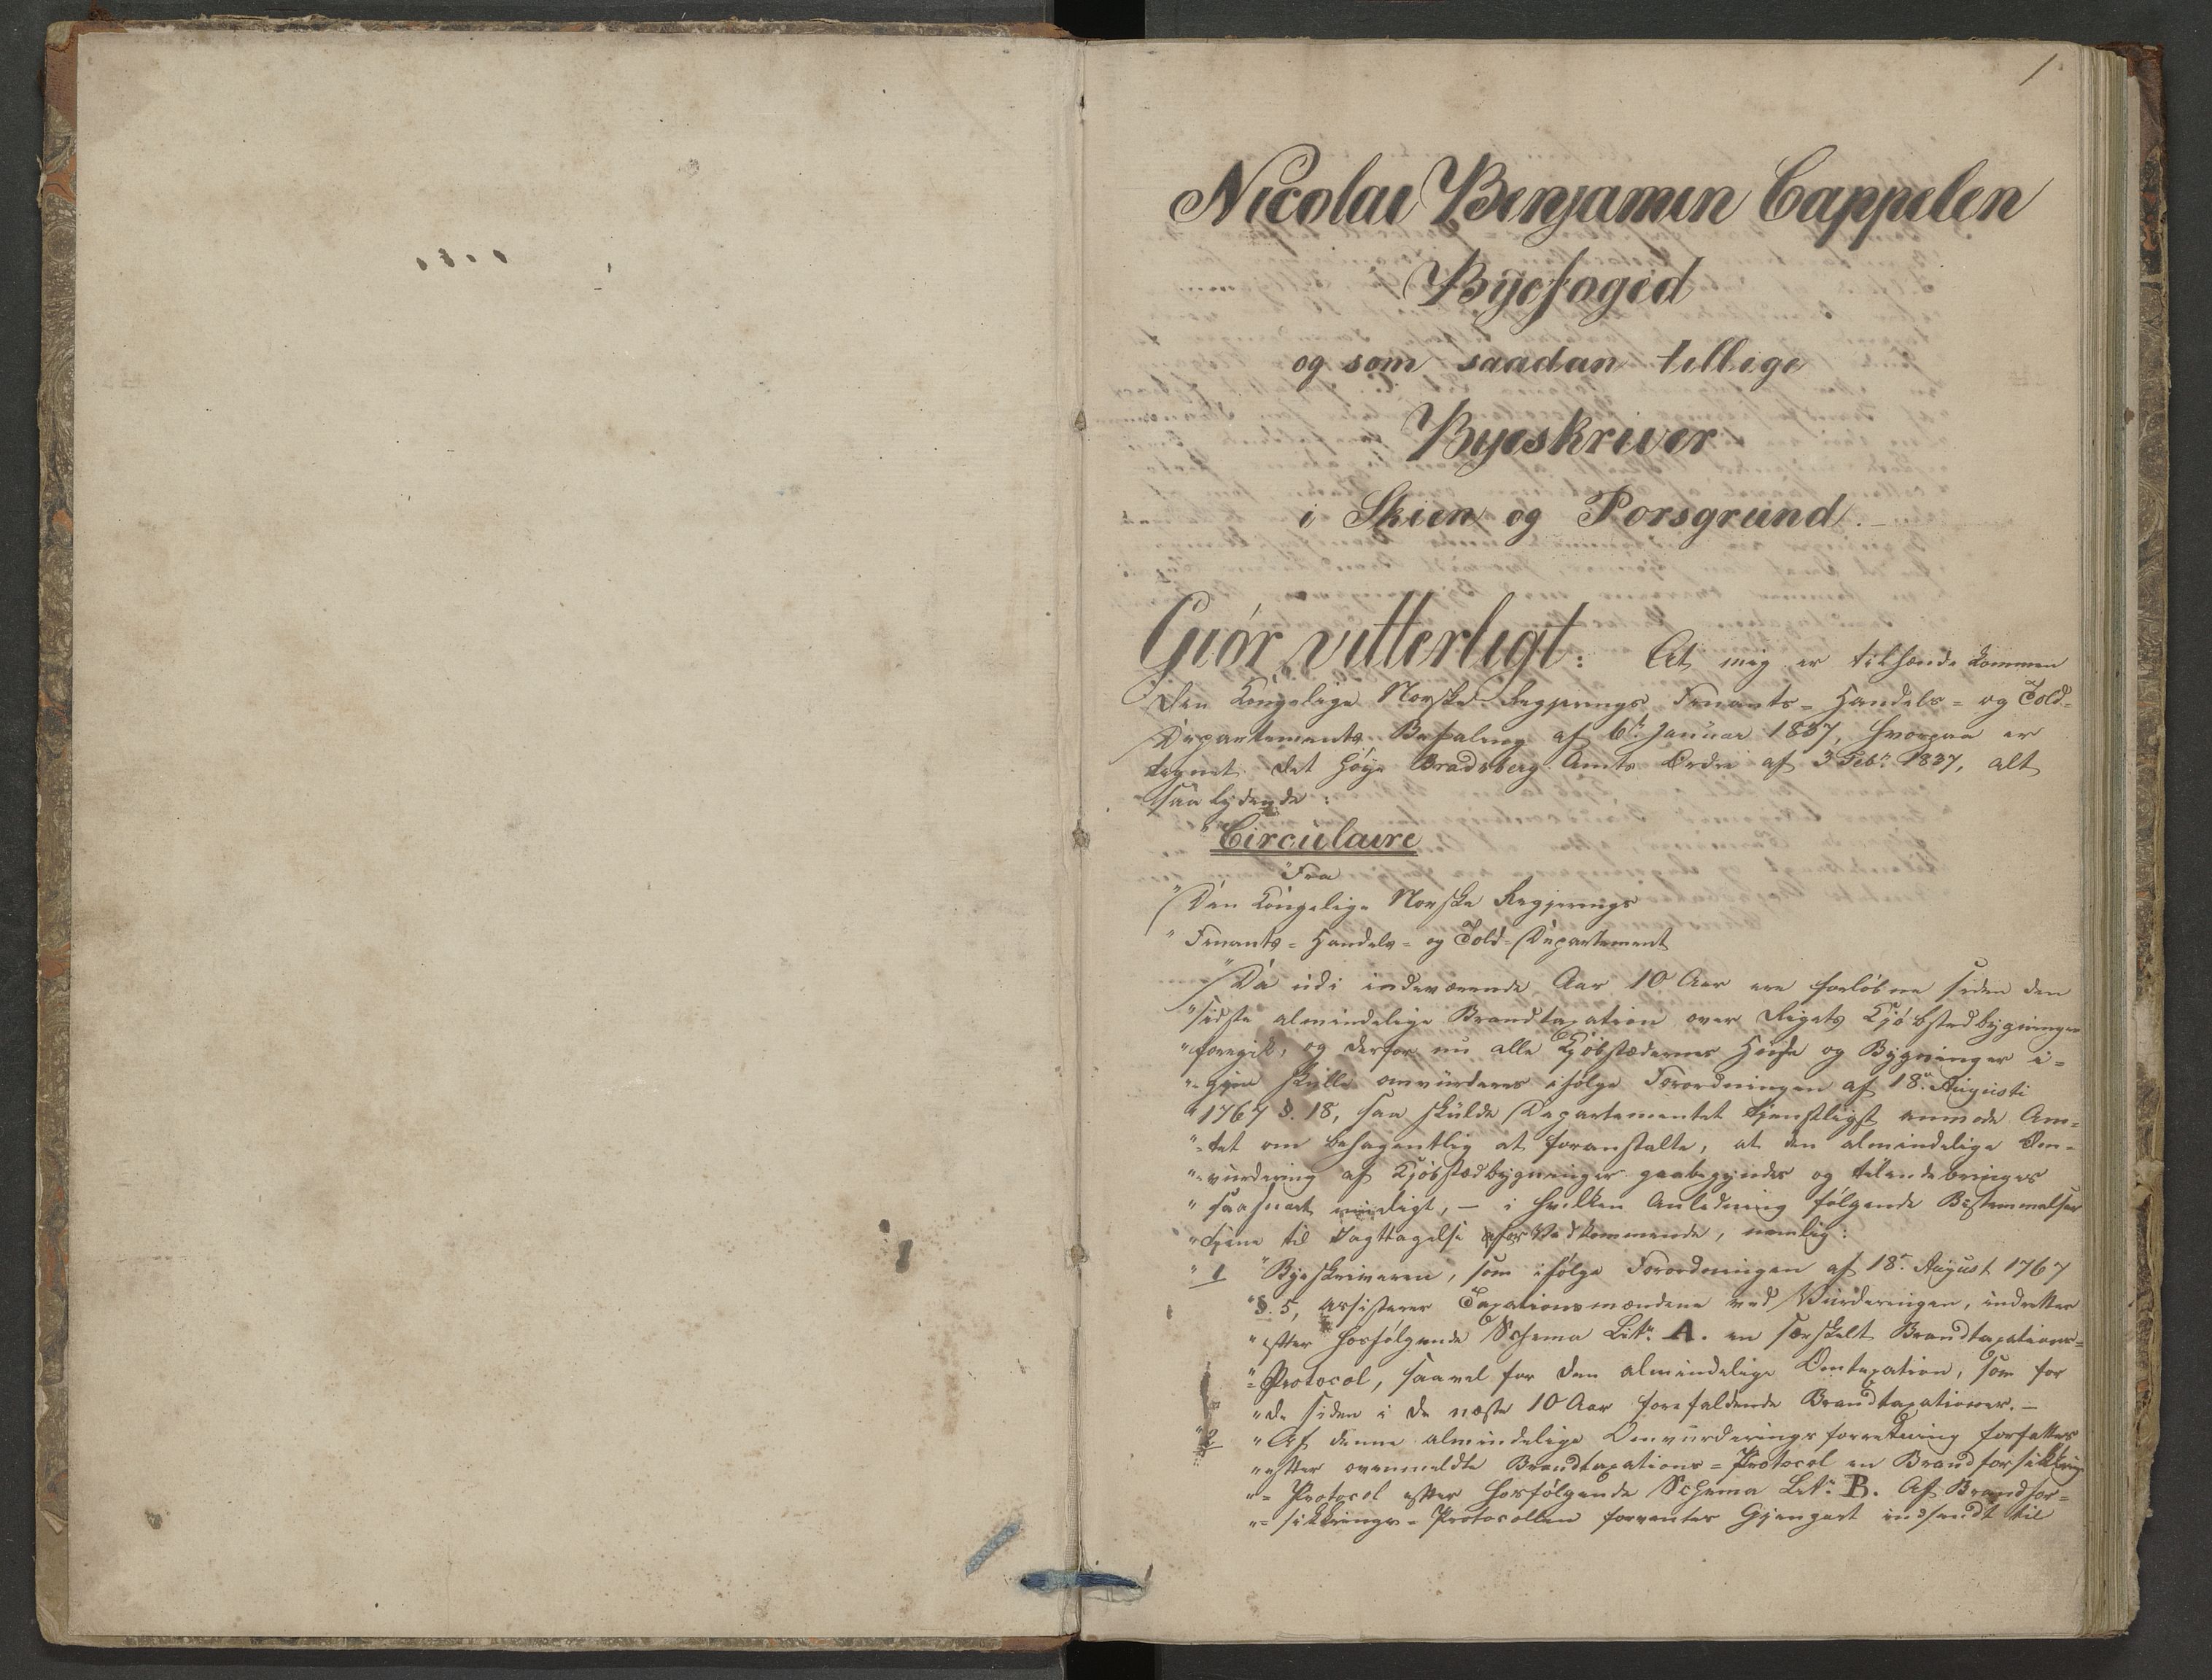 1
Nicolai Benjamin Cappelen
Byefoged
og som saadan tillige
Byeskriver
i Skien og Porsgrund.
Giör vitterligt: At mig er tilhænde kommen
den Kongelige Norske Regjerings Finants- Handels- og Told-
Departements Befaling af 6te Januar 1837, hvorpaa er
tegnet det høye Bradsberg Amts Ordre af 3 Febr. 1837, alt
saa lydende:
"Circulaire
"Fra
"Den Kongelige Norske Regjerings
"Finants- Handels- og Told-Departement
"Da udi indeværende Aar 10 Aar ere forløbne siden den
"sidste almindelige Brandtaxation over Rigets Kjøbstedbygninger
"foregik, og derfor nu alle Kjøbstædernes Huse og Bygninger i-
"-gjen skulle omvurderes ifølge Forordningen af 18de Augusti
"1767 §. 18, saa skulde Departementet tjenstligst anmode Am-
"-tet om behagentlig at foranstalte, at den almindelige Om-
"-vurdering af Kjøbstædbygninger paabegyndes og tilendebringes
"saasnart muligt, – i hvilken Anledning følgende Bestemmelser
"tjene til Iagttagelse for Vedkommende, nemlig:
"1 "Byeskriveren, som ifølge Forordningen af 18de August 1767
"§. 5, assisterer Taxationsmændene ved Vurderingen, indretter
"efter hosfølgende Schema Litr. A. en særskilt Brandtaxations-
"-Protocol, saavel for den almindelige Omtaxation, som for
"de siden i de næste 10 Aar forefaldende Brandtaxationer. –
"2 "Af denne almindelige Omvurderingsforretning forfattes
"efter ovenmeldte Brandtaxations-Protocol en Brandforsikkrings
"-Protocol efter hosfølgende Schema Litr. B. Af Brandfor-
"-sikkrings-Protocollen forventes Gjenpart indsendt til